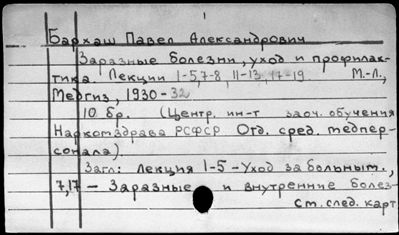 Бархаш Павел Александрович
Заразные болезни, уход и профилак-
тика. Лекции 1-5,7-8, 11-13, 17-19. М.-Л.,
Медгиз, 1930-32
10 бр. (Центр. ин-т заоч. обучения
Наркомздрава РСФСР Отд. сред. медпер-
сонала)
Загл: лекция 1-5 - Уход за больным.,
7,17 - Заразные и внутренние болез-
см. след. карт